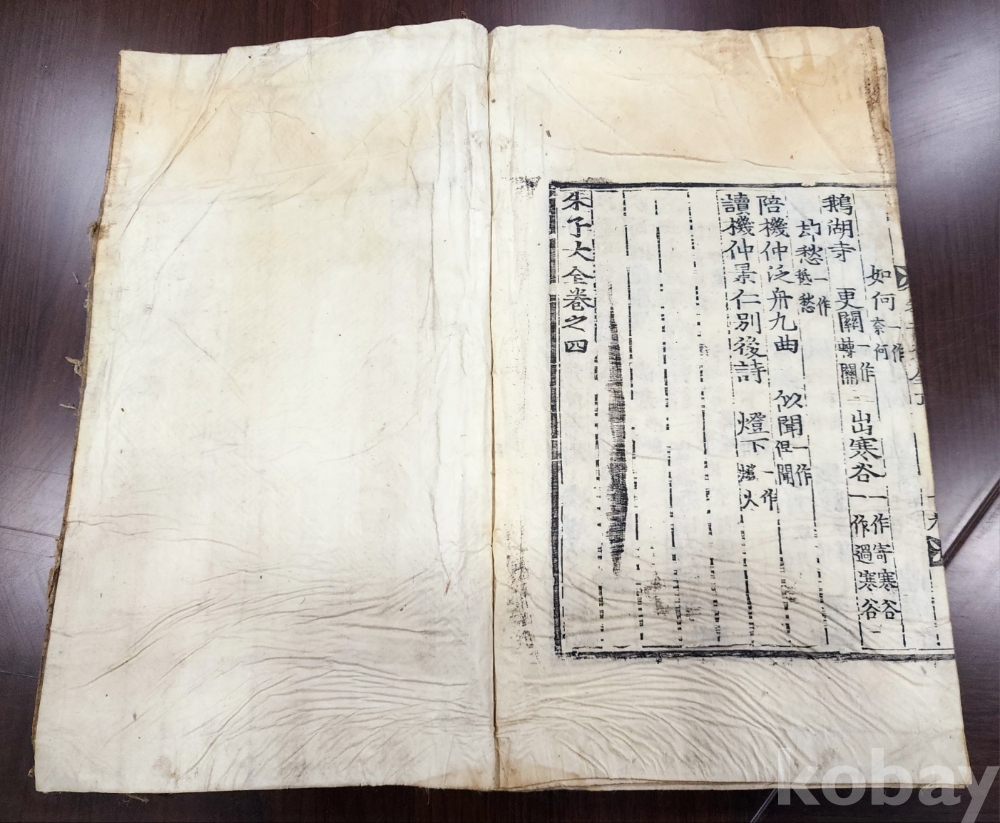 如何一作奈何
鵝湖寺 更關一作轉關 出寒谷一作寄寒谷一作過寒谷
愁一作愁
陪機仲泛舟九曲 似聞一作但聞
讀機仲景仁別後詩 燈下一作燈火
朱子大全卷之四
kobay